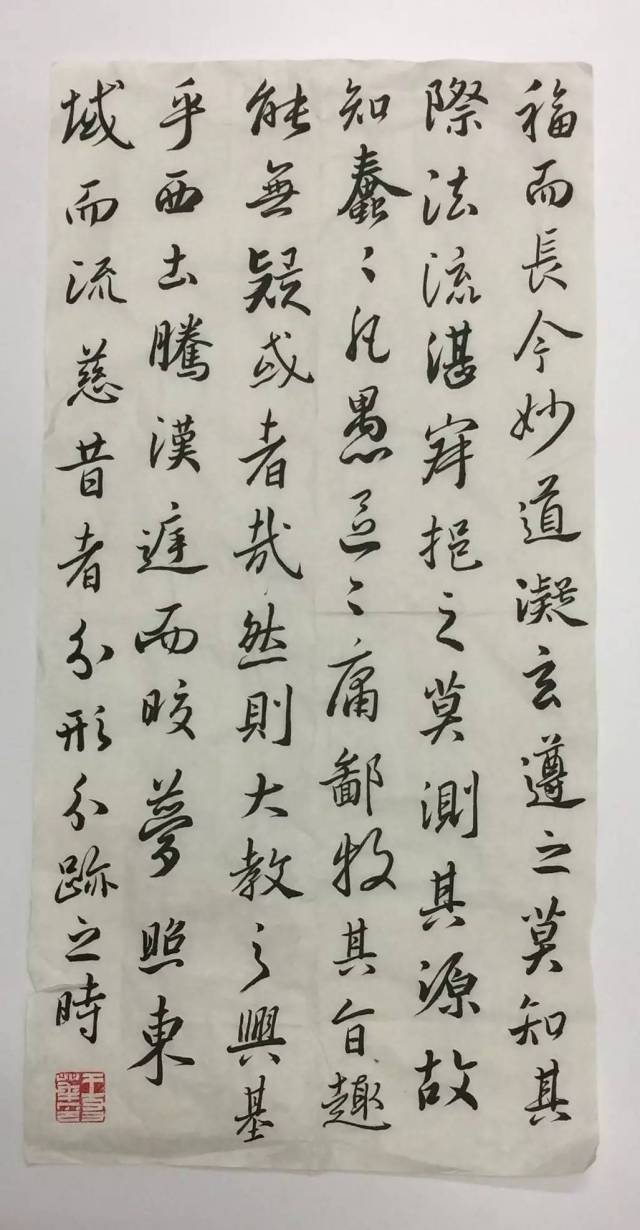 福而長今妙道凝玄遵之莫知其
際法流湛寂挹之莫測其源故
知蠢々凡愚區々庸鄙投其旨趣
能無疑或者哉然則大教之興基
乎西土騰漢庭而皎夢照東
域而流慈昔者分形分跡之時